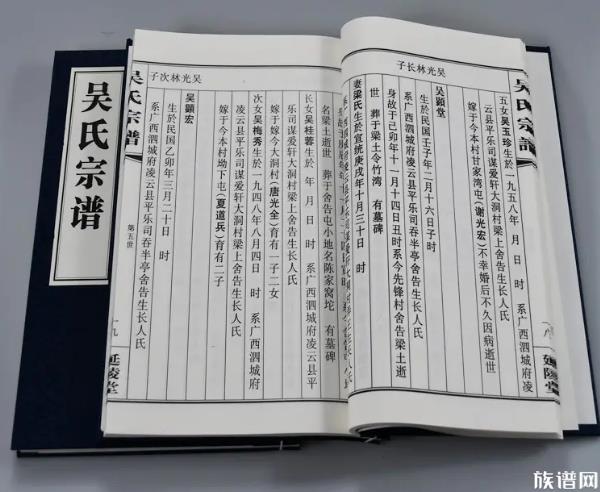 吴氏宗谱
吴氏宗谱
五女吴玉珍生於一九五八年 月 日 时 系广西泗城府凌
云县平乐司谋爱轩大洞村梁上舍告生长人氏
嫁于今本村甘家湾屯（谢光宏）不幸婚后不久因病逝世
延陵堂
吴光林长子
吴顕堂
生於民国壬子年二月十六日子时
系广西泗城府凌云县平乐司吞半亭舍告生长人氏
身故于己卯年十一月十四日丑时系今先锋村舍告梁土逝
世 葬于梁土令竹湾 有墓碑
妻梁氏生於宣统庚戌年十月三十日 时
名梁土逝世 葬于舍告屯小地名陈家窝坨 有墓碑
长女吴桂蓉生於 年 月 日 时 系广西泗城府凌云县平
乐司谋爱轩大洞村梁上舍告生长人氏
嫁于今本村大洞屯（唐光全）育有一子二女
次女吴梅秀生於一九四八年八月四日 时 系广西泗城府
凌云县平乐司谋爱轩大洞村梁上舍告生长人氏
嫁于今本村坳下屯（夏道兵）育有二子
吴光林次子
吴顕宏
生於民国乙卯年三月二十日 时
系广西泗城府凌云县平乐司吞半亭舍告生长人氏
吴氏宗谱
第五世
十九
延陵堂
族谱网